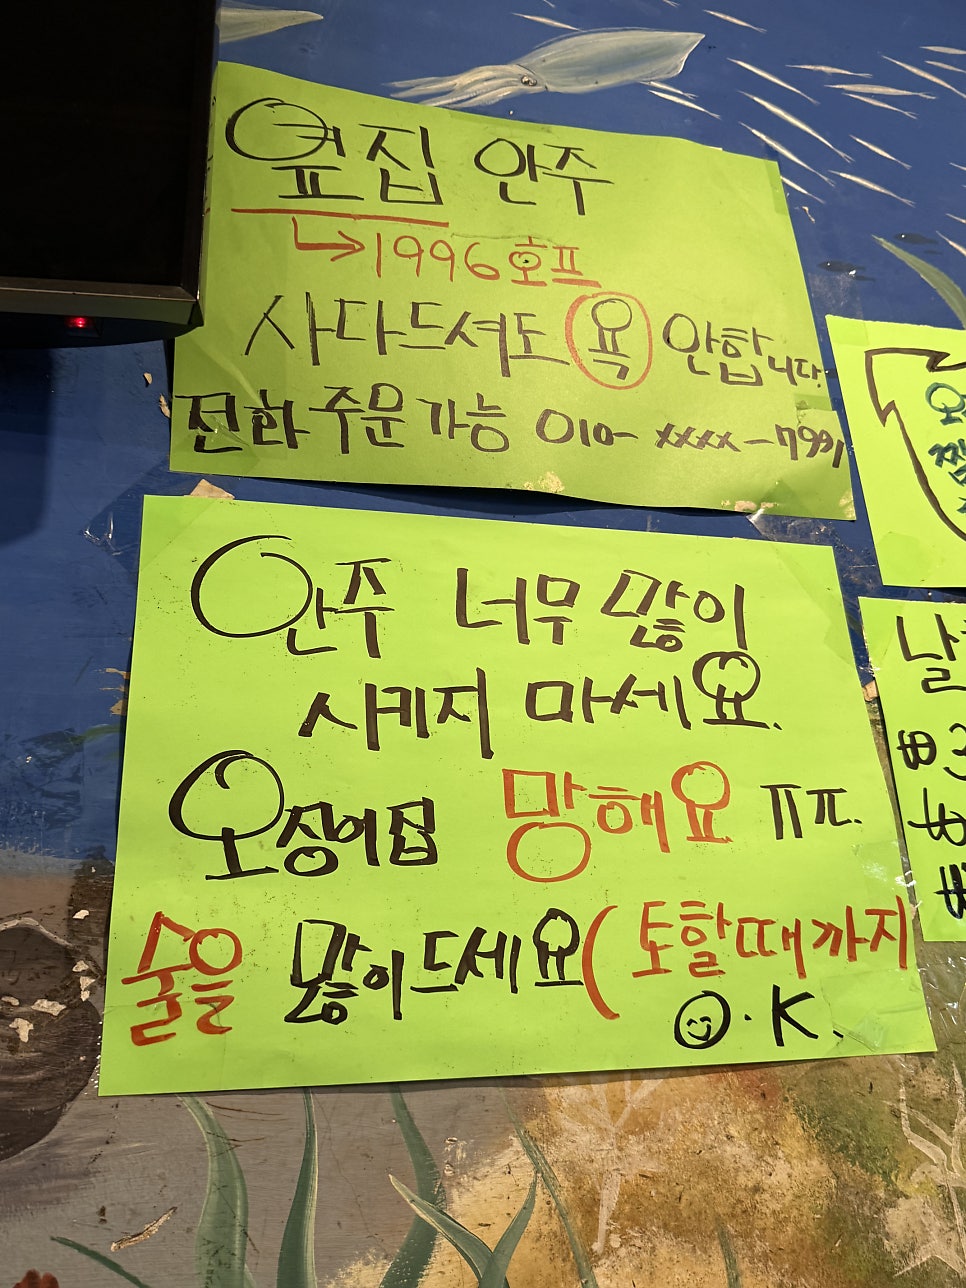 옆집 안주
↳1996호프
사다드셔도 욕 안합니다.
전화 주문 가능 010-xxxx-7991
안주 너무 많이
시키지 마세요.
오징어집 망해요 ㅠㅠ.
술을 많이드세요(토할때까지
☺.K.